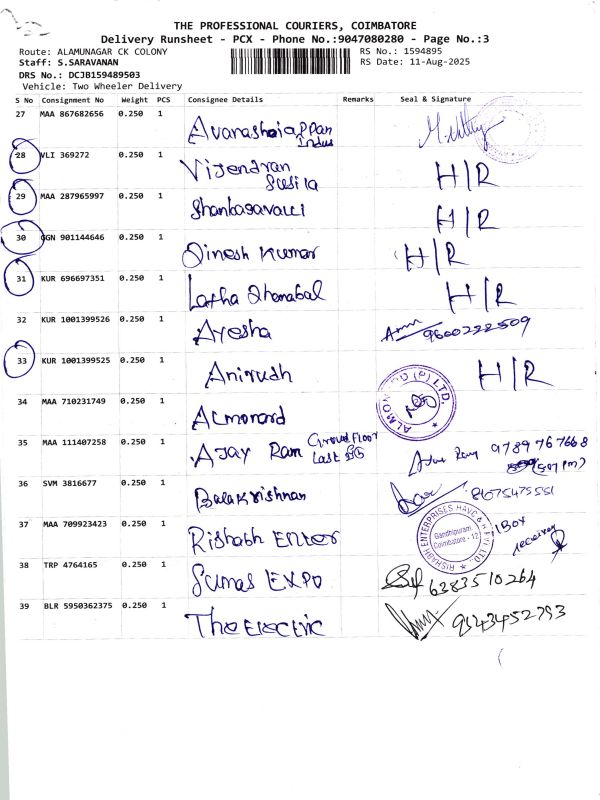 THE PROFESSIONAL COURIERS, COIMBATORE
Delivery Runsheet - PCX - Phone No.:9047080280 - Page No.:3
Route: ALAMUNAGAR CK COLONY
RS No.: 1594895
Staff: S.SARAVANAN
RS Date: 11-Aug-2025
DRS No.: DCJB159489503
Vehicle: Two Wheeler Delivery
S No Consignment No Weight PCS Consignee Details Remarks Seal & Signature
27 MAA 867682656 0.250 1
Indus
28 VLI 369272 0.250 1 Vijendran H/R
Susila
29 MAA 287965997 0.250 1 H/R
30 GGN 901144646 0.250 1 Dinesh Kumar H/R
31 KUR 696697351 0.250 1 Latha H/R
32 KUR 1001399526 0.250 1 Ayesha 9600222509
33 KUR 1001399525 0.250 1 Anirudh H/R
34 MAA 710231749 0.250 1 Almonard
35 MAA 111407258 0.250 1 Ajay Ram Ground Floor 9789767668
36 SVM 3816677 0.250 1 Balakrishnan 8675475551
37 MAA 709923423 0.250 1 Rishabh Enter 1 Box
RISHABH ENTERPRISES
Gandhipuram,
Coimbatore - 12
38 TRP 4764165 0.250 1 Sumas EXPO 6383510264
39 BLR 5950362375 0.250 1 The Electric 9343452793